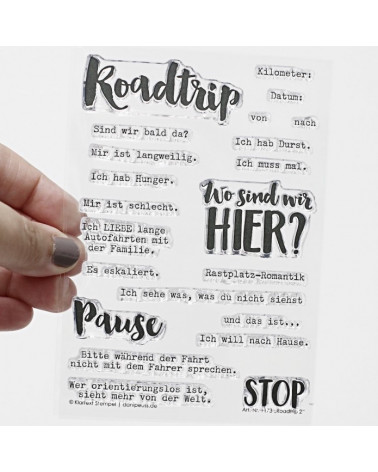 Roadtrip
Kilometer:
Datum:
von nach
Sind wir bald da?
Ich hab Durst.
Mir ist langweilig.
Ich muss mal.
Ich hab Hunger.
Wo sind wir
HIER?
Mir ist schlecht.
Ich LIEBE lange
Autofahrten mit
der Familie.
Es eskaliert.
Rastplatz-Romantik
Ich sehe was, was du nicht siehst
und das ist...
Pause
Ich will nach Hause.
Bitte während der Fahrt
nicht mit dem Fahrer sprechen.
STOP
Wer orientierungslos ist,
sieht mehr von der Welt.
© Klartext Stempel | danipeuss.de